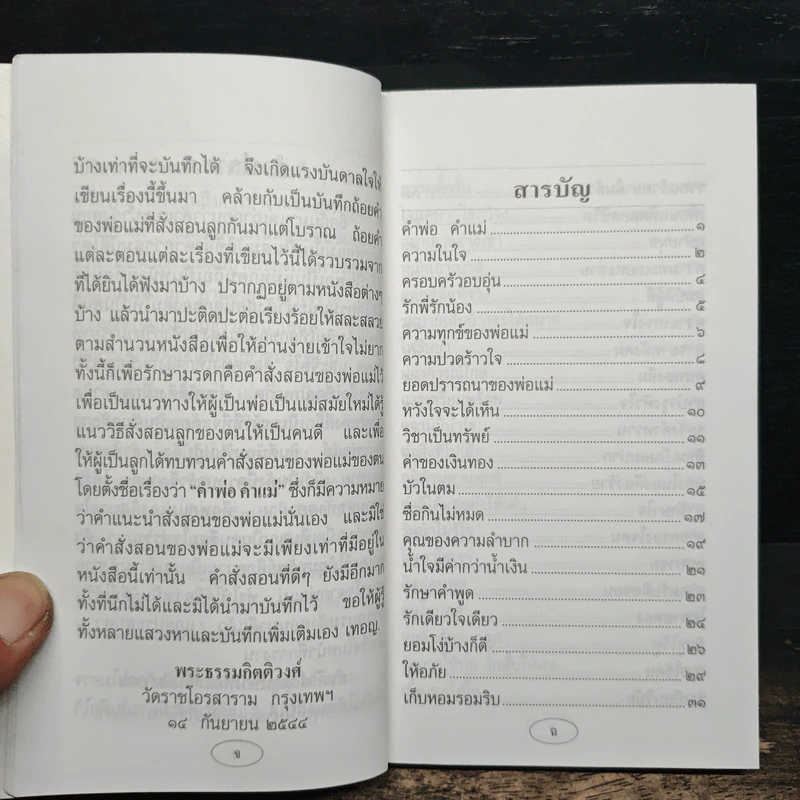 บ้างเท่าที่จะบันทึกได้ จึงเกิดแรงบันดาลใจให้
เขียนเรื่องนี้ขึ้นมา คล้ายกับเป็นบันทึกถ้อยคำ
ของพ่อแม่ที่สั่งสอนลูกกันมาแต่โบราณ ถ้อยคำ
แต่ละตอนแต่ละเรื่องที่เขียนไว้นี้ได้รวบรวมจาก
ที่ได้ยินได้ฟังมาบ้าง ปรากฏอยู่ตามหนังสือต่างๆ
บ้าง แล้วนำมาปะติดปะต่อเรียงร้อยให้สละสลวย
ตามสำนวนหนังสือเพื่อให้อ่านง่ายเข้าใจไม่ยาก
ทั้งนี้ก็เพื่อรักษามรดกคือคำสั่งสอนของพ่อแม่ไว้
เพื่อเป็นแนวทางให้ผู้เป็นพ่อเป็นแม่สมัยใหม่ได้รู้
แนววิธีสั่งสอนลูกของตนให้เป็นคนดี และเพื่อ
ให้ผู้เป็นลูกได้ทบทวนคำสั่งสอนของพ่อแม่ของตน
โดยตั้งชื่อเรื่องว่า “คำพ่อ คำแม่” ซึ่งก็มีความหมาย
ว่าคำแนะนำสั่งสอนของพ่อแม่นั่นเอง และมิใช่
ว่าคำสั่งสอนของพ่อแม่จะมีเพียงเท่าที่มีอยู่ใน
หนังสือนี้เท่านั้น คำสั่งสอนที่ดีๆ ยังมีอีกมาก
ทั้งที่นึกไม่ได้และมิได้นำมาบันทึกไว้ ขอให้ผู้รู้
ทั้งหลายแสวงหาและบันทึกเพิ่มเติมเอง เทอญ.
พระธรรมกิตติวงศ์
วัดราชโอรสาราม กรุงเทพฯ
๑๔ กันยายน ๒๕๔๔
จ
สารบัญ
คำพ่อ คำแม่ ๑
ความในใจ ๒
ครอบครัวอบอุ่น ๔
รักพี่รักน้อง ๕
ความทุกข์ของพ่อแม่ ๖
ความปวดร้าวใจ ๘
ยอดปรารถนาของพ่อแม่ ๙
หวังใจจะได้เห็น ๑๐
วิชาเป็นทรัพย์ ๑๑
ค่าของเงินทอง ๑๓
บัวในตม ๑๕
ซื่อกินไม่หมด ๑๗
คุณของความลำบาก ๑๙
น้ำใจมีค่ากว่าน้ำเงิน ๒๑
รักษาคำพูด ๒๓
รักเดียวใจเดียว ๒๔
ยอมโง่บ้างก็ดี ๒๖
ให้อภัย ๒๙
เก็บหอมรอมริบ ๓๑
ฉ